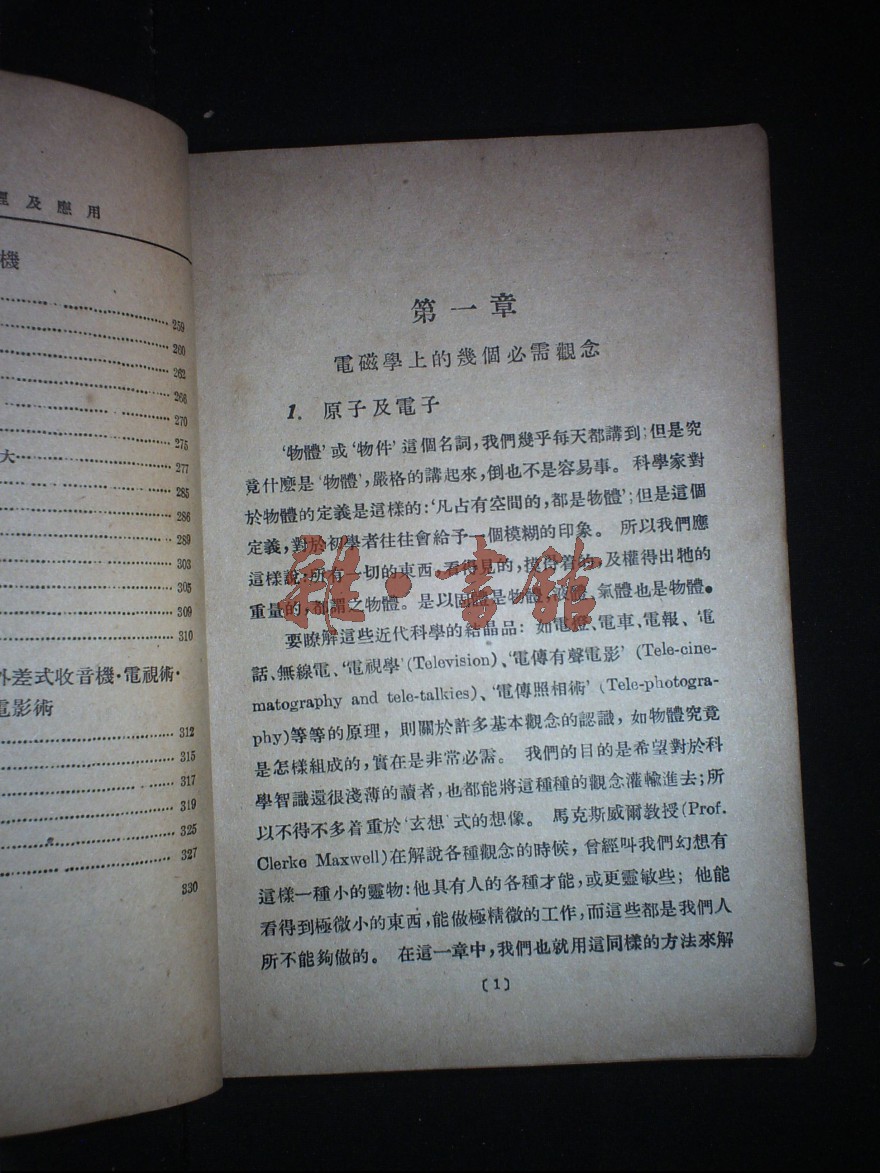 理及應用
機
259
260
262
266
270
275
大
277
285
286
289
303
305
309
310
外差式收音機·電視術·
電影術
312
315
317
319
325
327
330
第一章
電磁學上的幾個必需觀念
1. 原子及電子
‘物體’或‘物件’這個名詞，我們幾乎每天都講到；但是究
竟什麽是‘物體’，嚴格的講起來，倒也不是容易事。科學家對
於物體的定義是這樣的：‘凡占有空間的，都是物體’；但是這個
定義，對於初學者往往會給予一個模糊的印象。 所以我們應
這樣說：所有一切的東西，看得見的，摸得着的，及權得出牠的
重量的，都謂之物體。是以固體是物體，液體、氣體也是物體。
要瞭解這些近代科學的結晶品：如電燈、電車、電報、電
話、無線電、‘電視學’(Television)、‘電傳有聲電影’(Tele-cine-
matography and tele-talkies)、‘電傳照相術’(Tele-photogra-
phy)等等的原理，則關於許多基本觀念的認識，如物體究竟
是怎樣組成的，實在是非常必需。 我們的目的是希望對於科
學智識還很淺薄的讀者，也都能將這種種的觀念灌輸進去；所
以不得不多着重於‘玄想’式的想像。 馬克斯威爾教授(Prof.
Clerke Maxwell)在解說各種觀念的時候，曾經叫我們幻想有
這樣一種小的靈物：他具有人的各種才能，或更靈敏些；他能
看得到極微小的東西，能做極精微的工作，而這些都是我們人
所不能夠做的。 在這一章中，我們也就用這同樣的方法來解
(1)
雜·書館